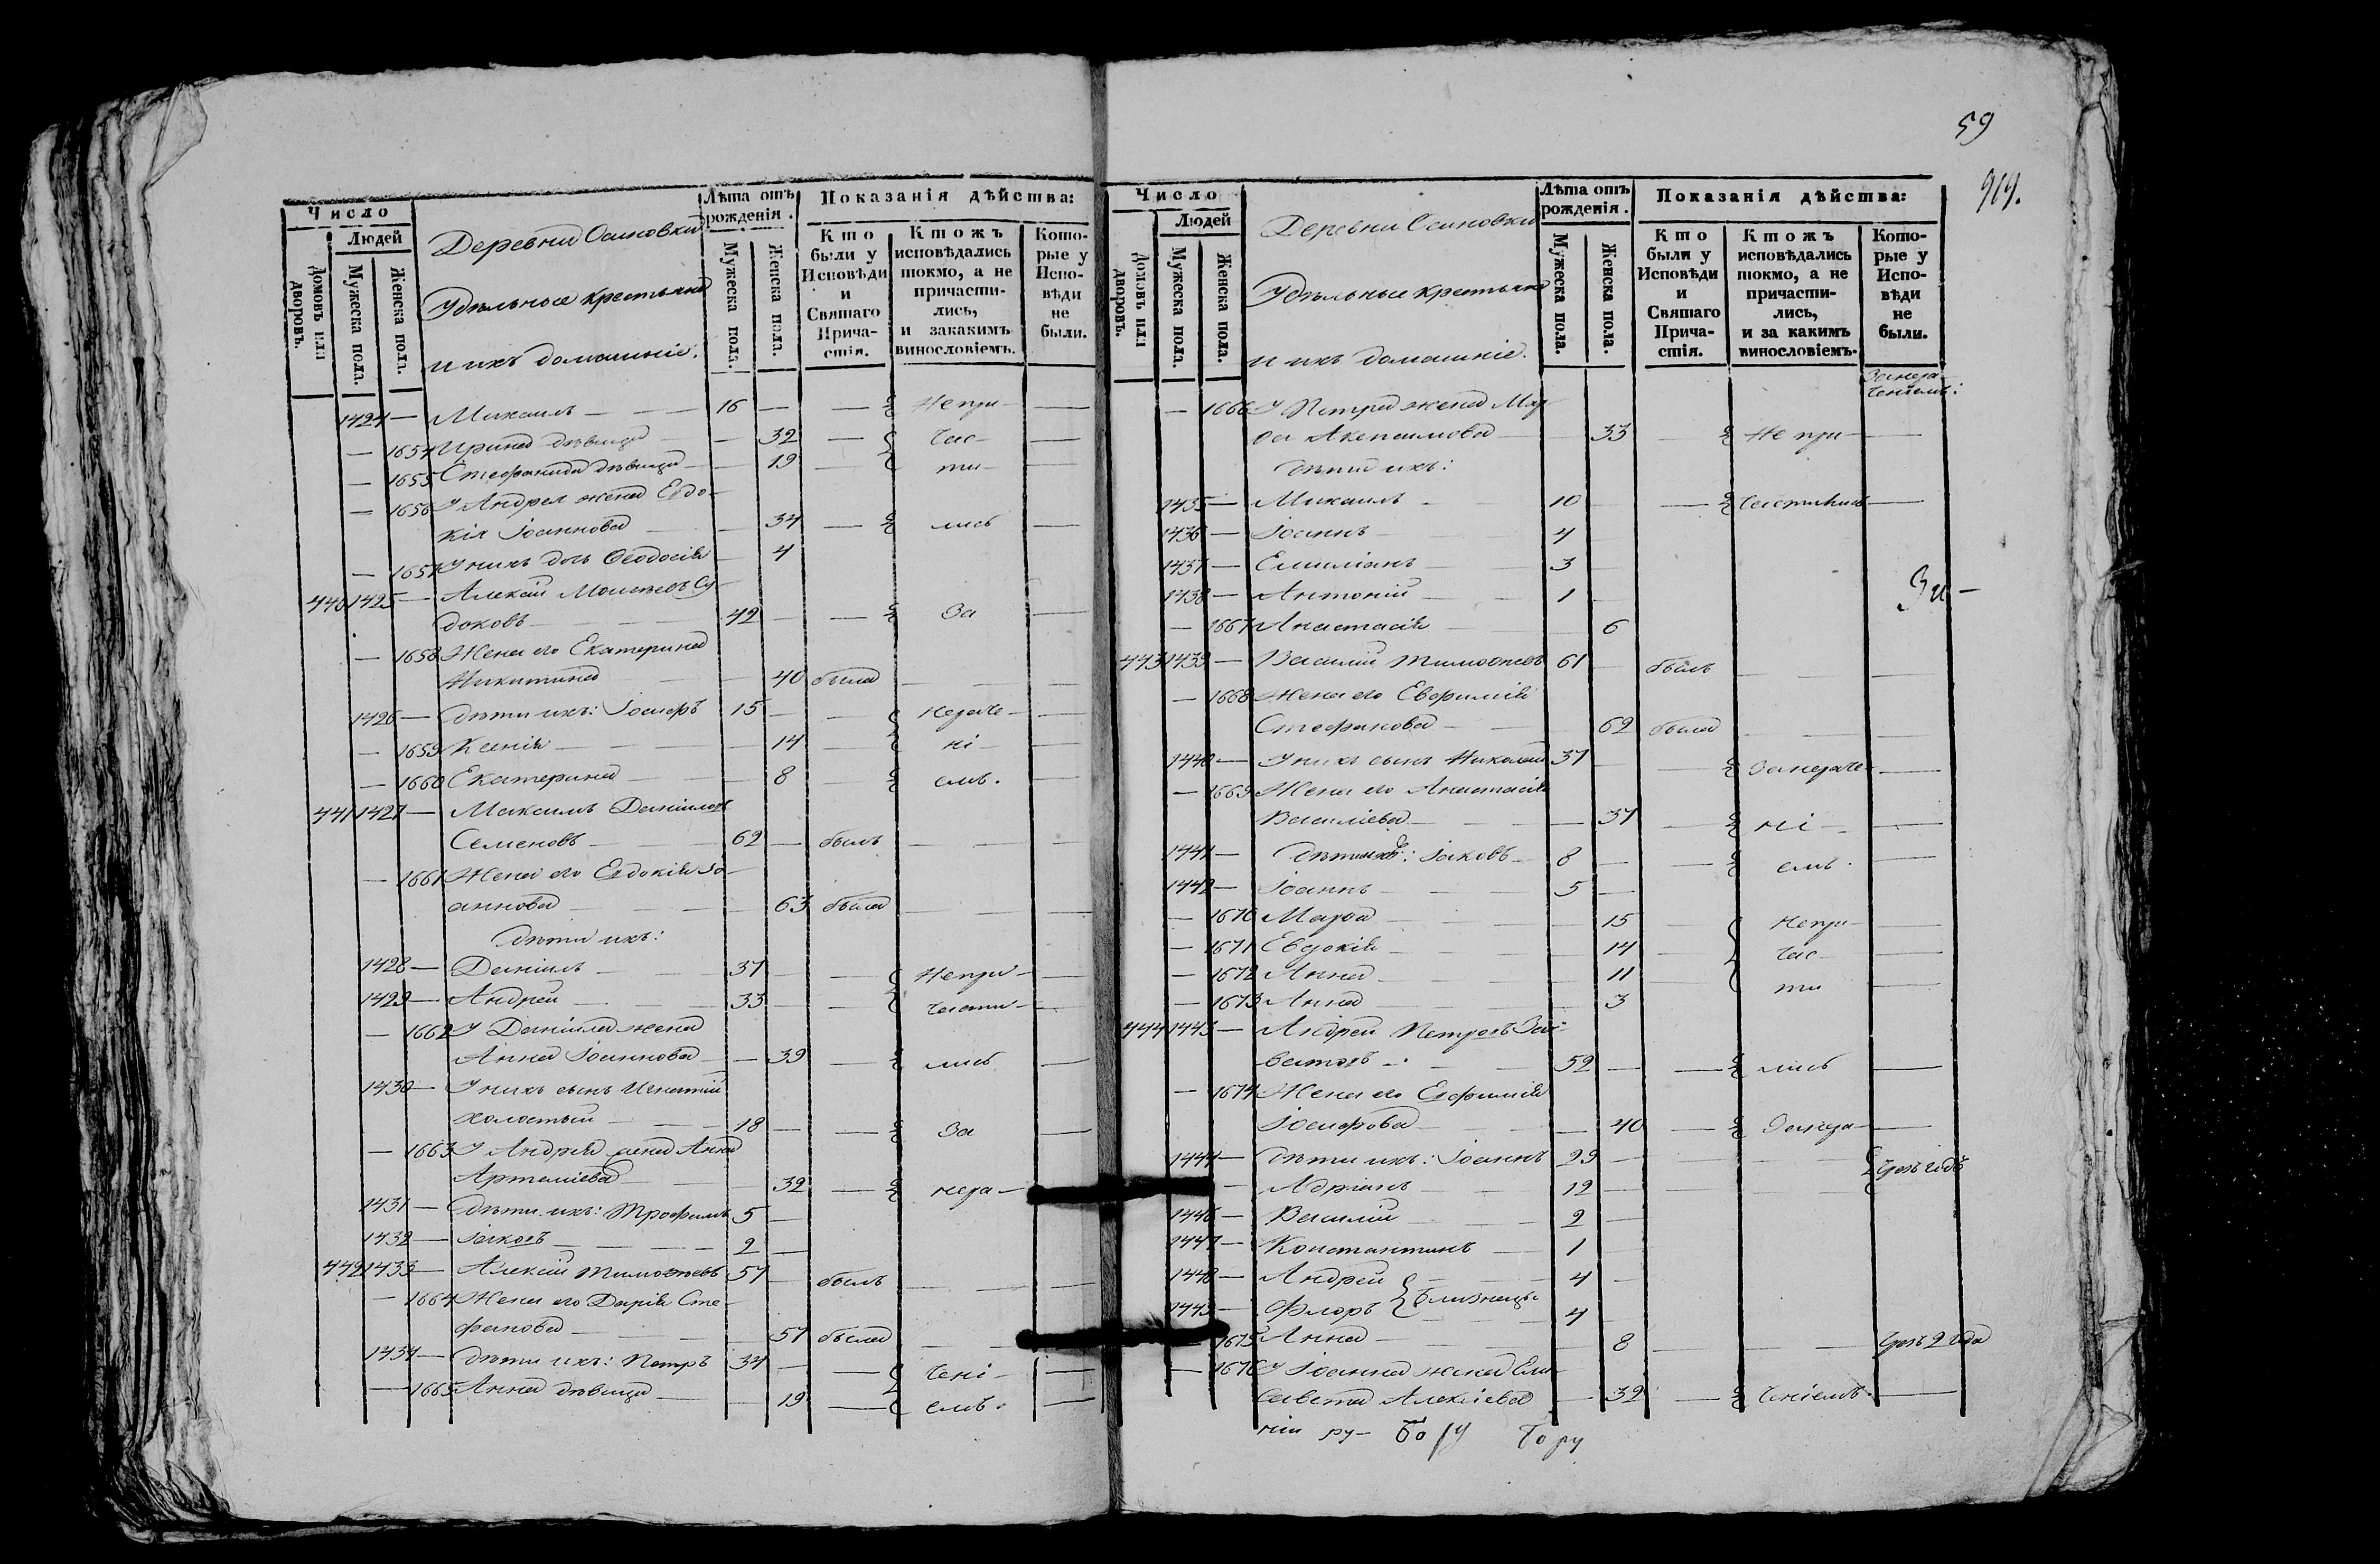 Число
Людей
Домовъ или дворовъ.
Мужеска пола.
Женска пола.
Деревни Осиновки
Удѣльные крестьяне
и ихъ домашніе.
Лѣта отъ рожденія.
Мужеска пола.
Женска пола.
Показанія дѣйства:
Кто были у Исповѣди и Святаго Прича-стія.
Ктожъ исповѣдались токмо, а не причасти-лись, и закакимъ винословіемъ.
Кото-рые у Испо-вѣди не были.
1424 — Михаилъ — 16 — — Непри- —
— 1654 Ирина дѣвица — 32 — час- —
— 1655 Стефанида дѣвица — 19 ти-
— 1656 У Андрея жена Евдо-
кія Іоаннова — 34 — лись —
— 1657 У нихъ дочь Ѳеодосія — 4
440 1425 — Алексій Моисеевъ Су-
доковъ — 42 — — За —
— 1658 Жена его Екатерина
Никитина — 40 была —
1426 — Дѣти ихъ: Іосифъ 15 — — нераче- —
— 1659 Ксенія — 14 — ні- —
— 1660 Екатерина — 8 — емъ. —
441 1427 — Максимъ Даніиловъ
Семеновъ — 62 — былъ —
— 1661 Жена его Евдокія Іо-
аннова — 63 была —
Дѣти ихъ:
1428 — Даніилъ — 37 — — Непри- —
1429 — Андрей — 33 — — части- —
— 1662 У Даніила жена
Анна Іоаннова — 39 — лись —
1430 — У нихъ сынъ Игнатій
холостый — 18 — — За —
— 1663 У Андрея жена Анна
Артеміева — 32 — нера-
1431 — Дѣти ихъ: Трофимъ 5 —
1432 — Іаковъ — 2 —
442 1433 — Алексій Тимоѳеевъ 57 — былъ —
— 1664 Жена его Дарія Сте-
фанова — 57 была —
1434 — Дѣти ихъ: Петръ 34 — — чені- —
— 1665 Анна дѣвица — 19 — емъ. —
59
919.
Число
Людей
Домовъ или дворовъ.
Мужеска пола.
Женска пола.
Деревни Осиновки
Удѣльные крестьяне
и ихъ домашніе.
Лѣта отъ рожденія.
Мужеска пола.
Женска пола.
Показанія дѣйства:
Кто были у Исповѣди и Святаго Прича-стія.
Ктожъ исповѣдались токмо, а не причасти-лись, и за какимъ винословіемъ.
Кото-рые у Испо-вѣди не были.
За нера-
ченіемъ:
— 1666 У Петра жена Мар-
ѳа Акепсимова — 33 — Непри- —
Дѣти ихъ:
1435 — Михаилъ — 10 — частились —
1436 — Іоаннъ — 4
1437 — Емиліанъ — 3
1438 — Антоній — 1
— 1667 Анастасія — 6
443 1439 — Василій Тимоѳеевъ 61 — былъ —
— 1668 Жена его Евфимія
Стефанова — 62 была —
1440 — У нихъ сынъ Николай 37 — За нераче- —
— 1669 Жена его Анастасія
Василіева — 37 — ні- —
1441 — Дѣти ихъ: Іаковъ 8 — — емъ. —
1442 — Іоаннъ — 5 —
— 1670 Марѳа — 15 Непри- —
— 1671 Евдокія — 14 час- —
— 1672 Анна — 11 — ти —
— 1673 Анна — 3
444 1443 — Андрей Петровъ
52 — — лись —
— 1674 Жена его Евфимія
Іосифова — 40 — За нера- —
1444 — Дѣти ихъ: Іоаннъ 29 —
— Адріанъ — 12 —
1446 — Василій — 2 —
1447 — Константинъ — 1 —
1448 — Андрей } близнецы 4 —
1449 — Флоръ 4 —
1675 Анна — 8
— 1676 У Іоанна жена Ели-
савета Алексіева — 32 — ченіемъ. —